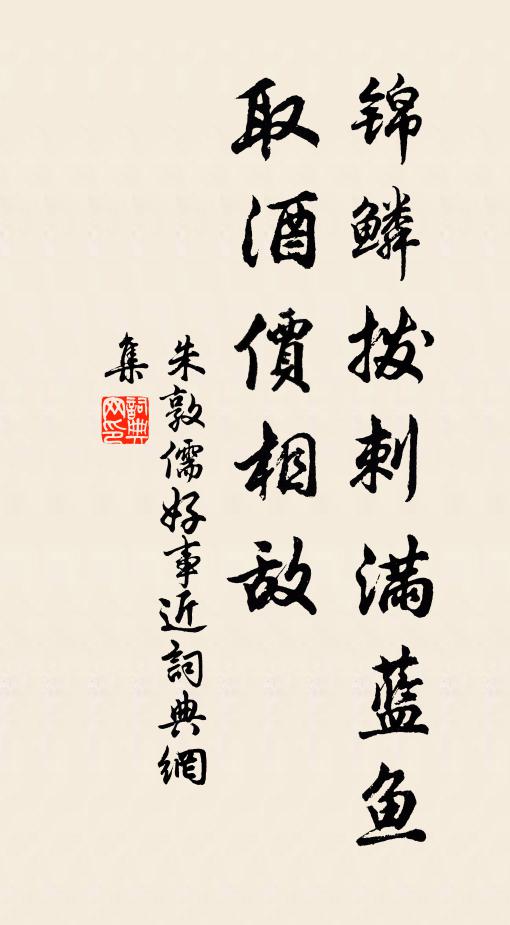 锦鳞拨刺满蓝鱼
取酒價相敌
朱敦儒好事近詞典網
集
詞典网印